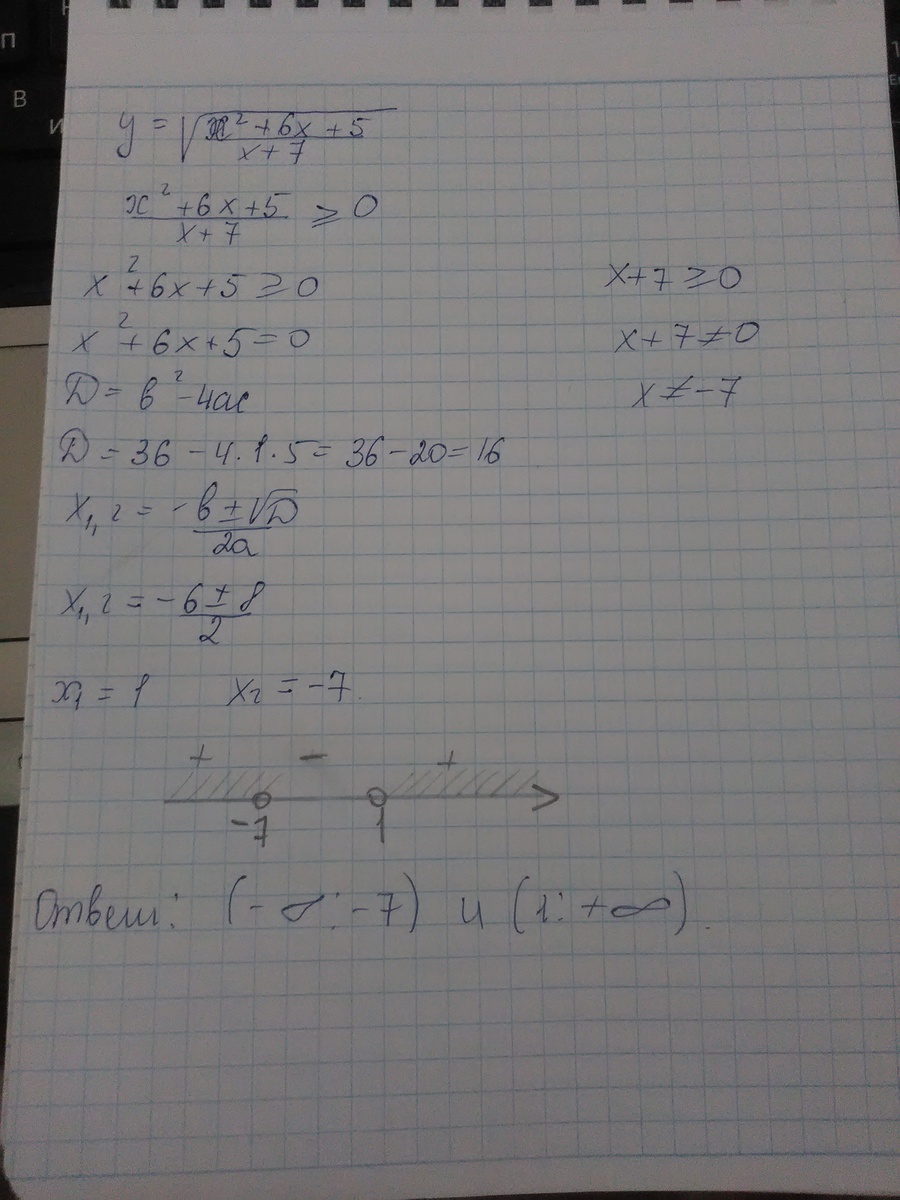 y = √(x² + 6x + 5 / x + 7)
x² + 6x + 5 / x + 7 ≥ 0
x² + 6x + 5 ≥ 0
x + 7 ≥ 0
x² + 6x + 5 = 0
x + 7 ≠ 0
D = в² - 4ac
x ≠ -7
D = 36 - 4·1·5 = 36 - 20 = 16
x₁,₂ = -в ± √D / 2a
x₁,₂ = -6 ± 8 / 2
x₁ = 1 x₂ = -7.
+ - +
-7 1
Ответ: (-∞: -7) и (1: +∞).